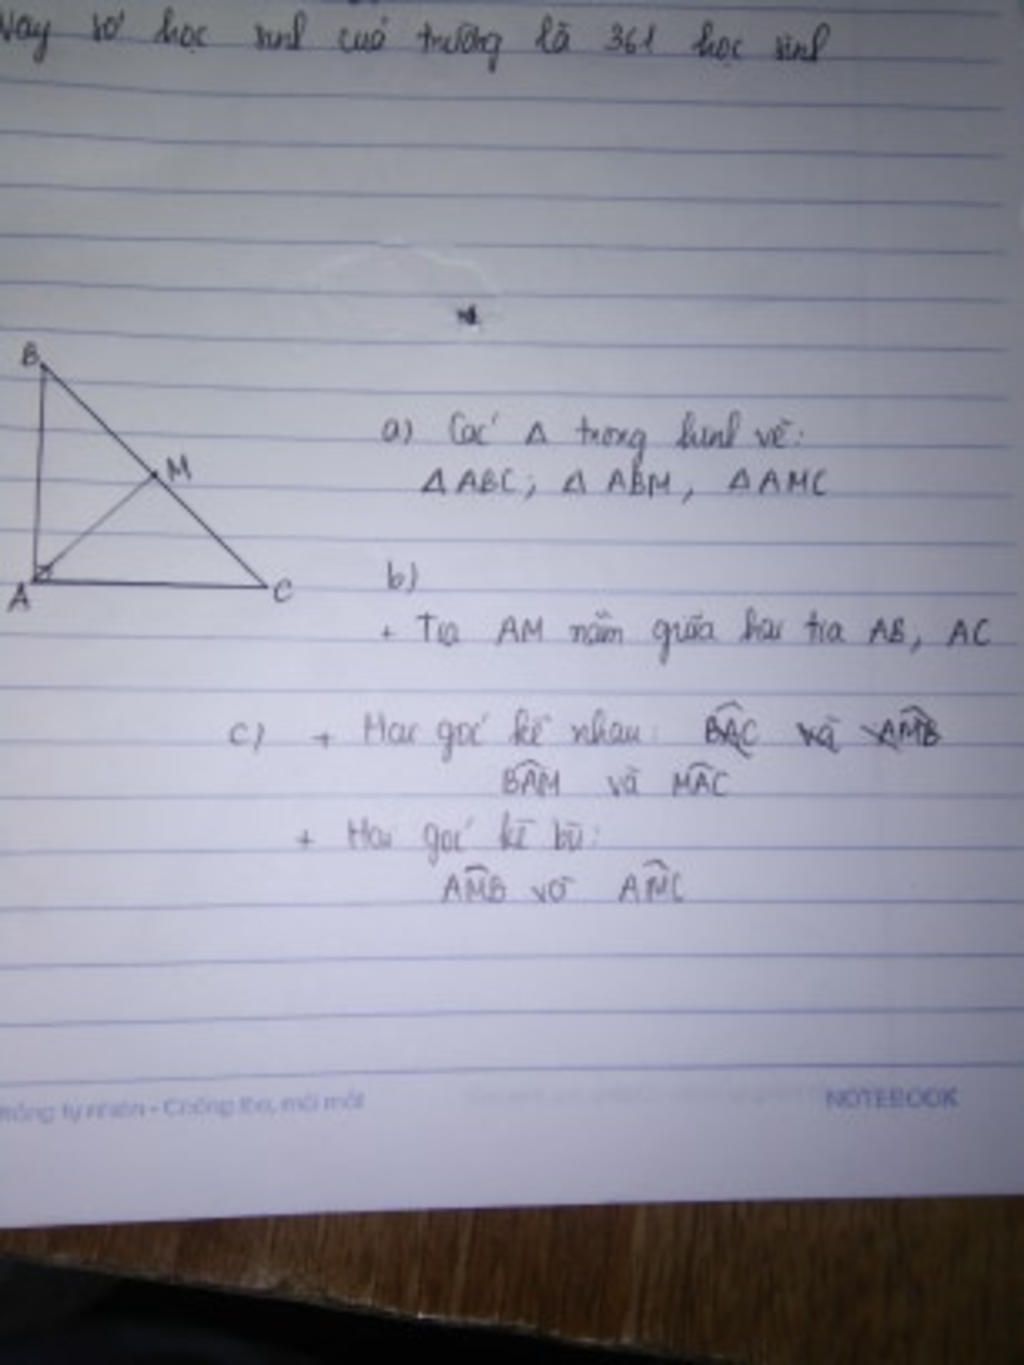 Vậy số học sinh của trường là 361 học sinh
B
M
A
C
a) Các Δ trong hình vẽ:
ΔABC; ΔABM, ΔAMC
b)
+ Tia AM nằm giữa hai tia AB, AC
c) + Hai góc kề nhau: BAC và AMB
BAM và MAC
+ Hai góc kề bù:
AMB và AMC
Chống lóa, mỏi mắt
NOTEBOOK